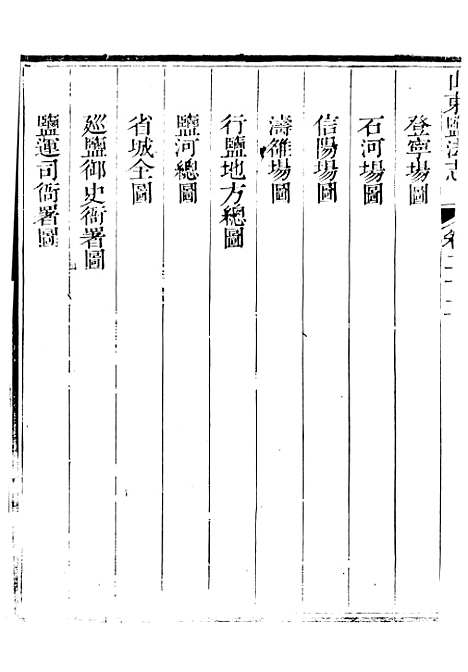 山東鹽法志 卷二十二
登寧場圖
石河場圖
信陽場圖
濤雒場圖
行鹽地方總圖
鹽河總圖
省城全圖
廵鹽御史衙署圖
鹽運司衙署圖